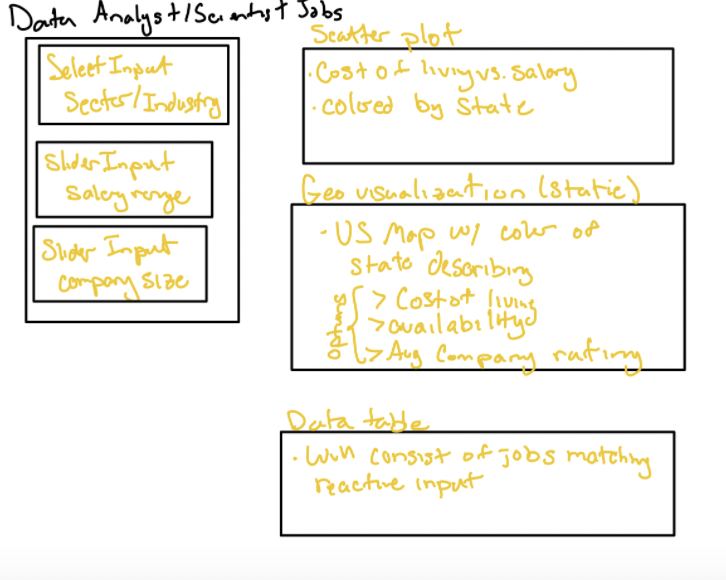 Data Analyst/Scientist Jobs
Select Input
Sector/Industry
Slider Input
Salary range
Slider Input
company size
Scatter plot
· Cost of living vs. Salary
· colored by State
Geo visualization (static)
- US Map w/ color of
state describing
options
> Cost of living
> availability
> Avg Company rating
Data table
· Will consist of jobs matching
reactive input